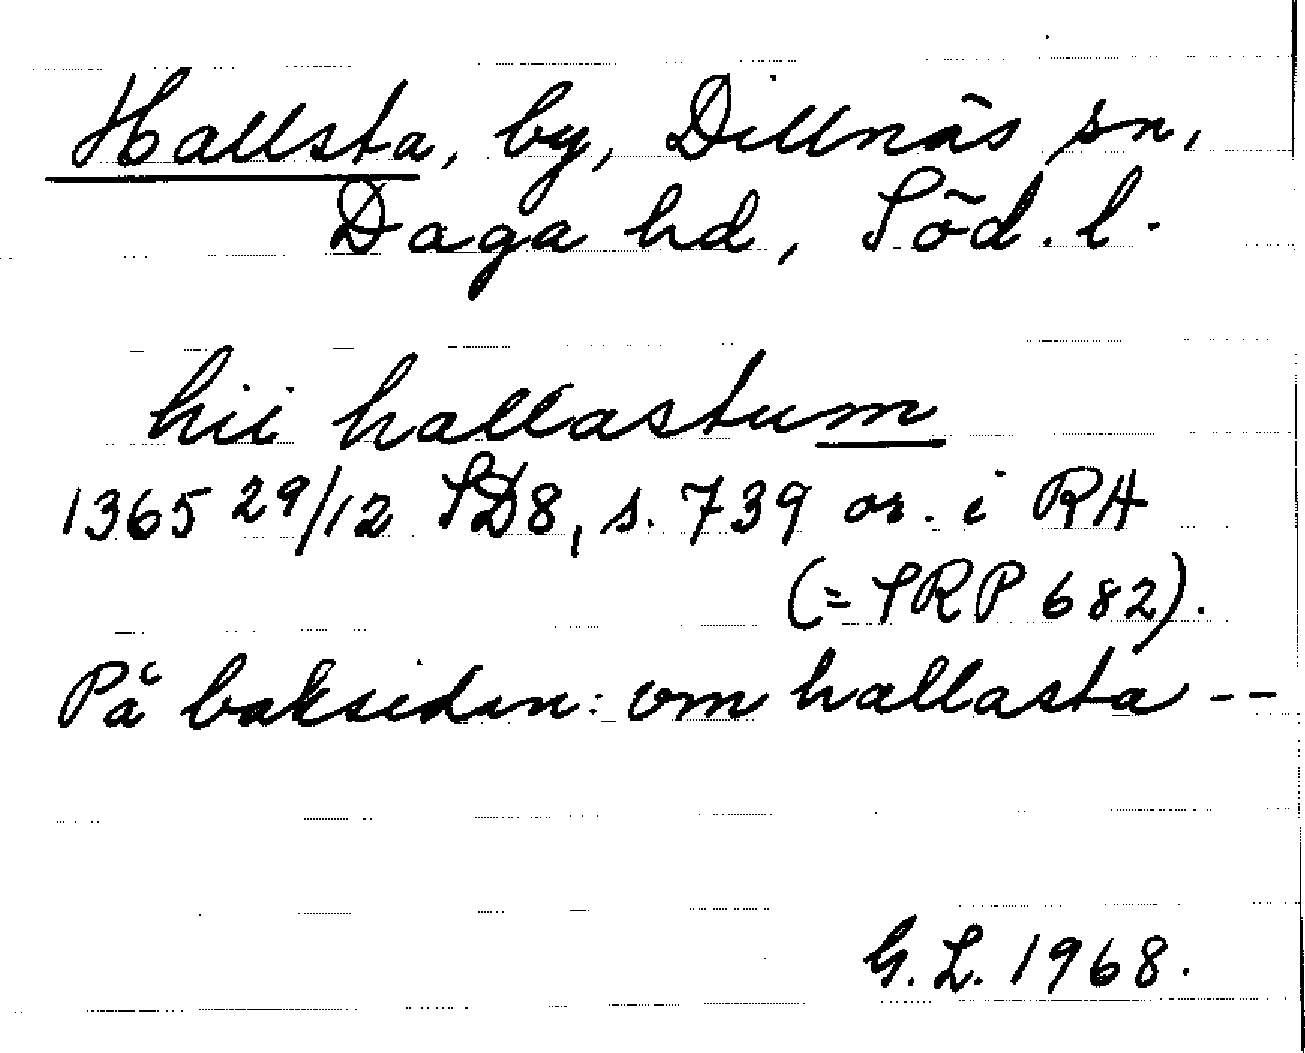 Hallsta, by, Dillnäs sn,
Daga hd, Söd. l.
hii hallastum
1365 29/12 SD8, s. 739 or. i RA
(= SRP 682).
På baksidan: om hallasta --
G. L. 1968.